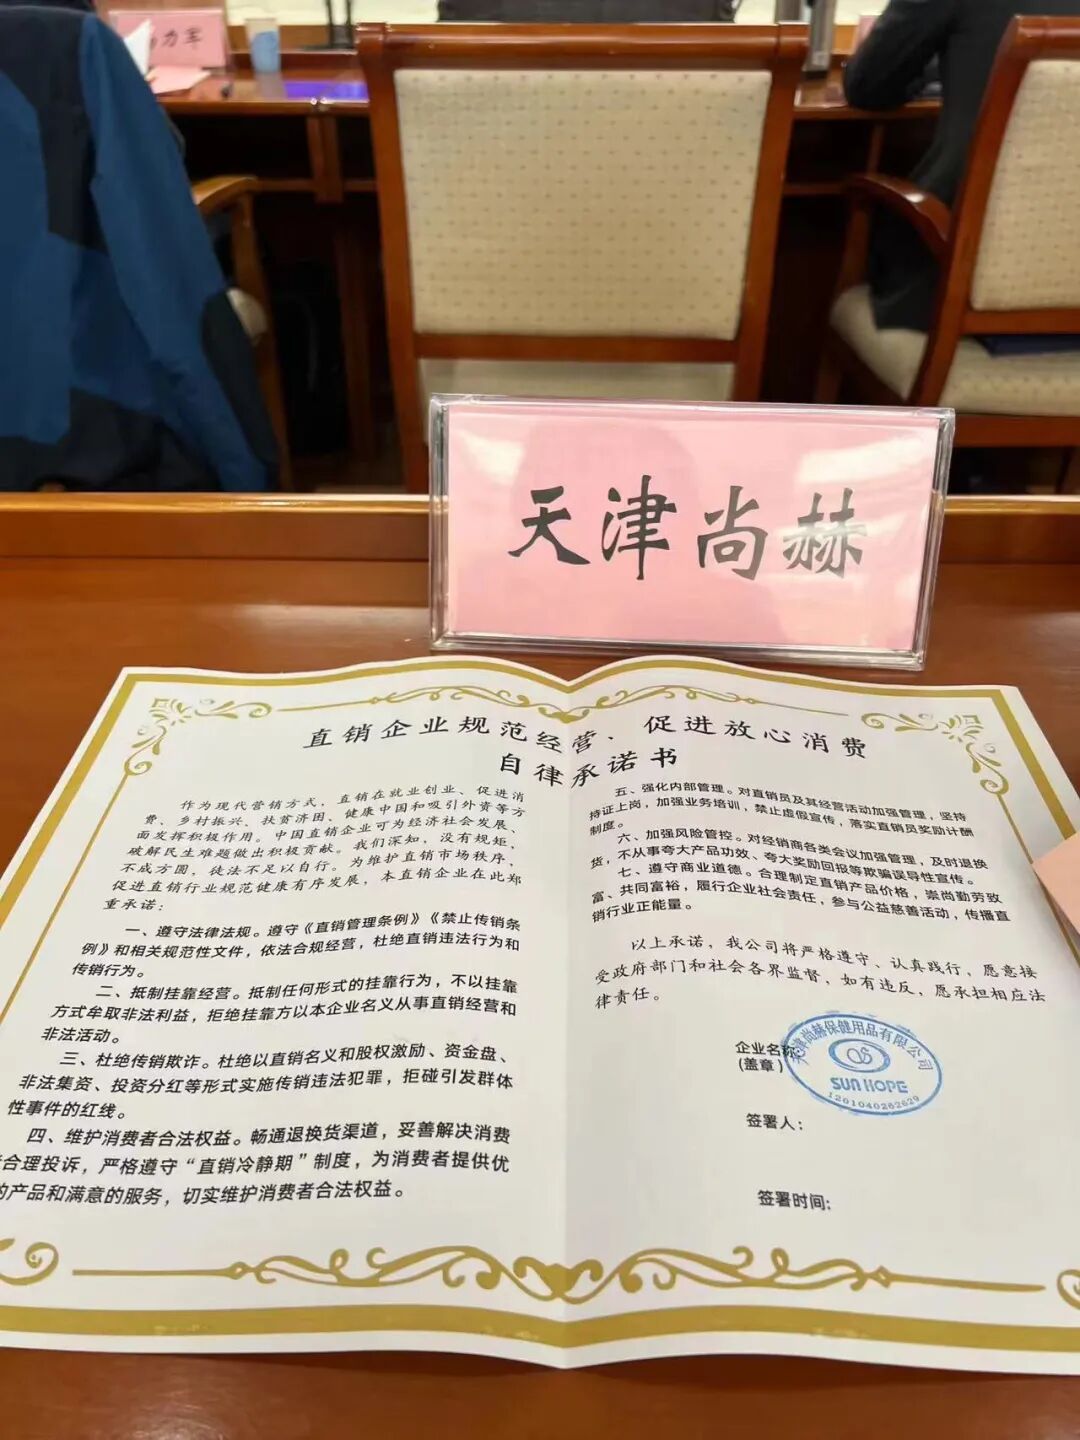 力军
天津尚赫
直销企业规范经营、促进放心消费
自律承诺书
作为现代营销方式，直销在就业创业、促进消
费、乡村振兴、扶贫济困、健康中国和吸引外资等方
面发挥积极作用。中国直销企业可为经济社会发展、
破解民生难题做出积极贡献。我们深知，没有规矩，
不成方圆，徒法不足以自行。为维护直销市场秩序，
促进直销行业规范健康有序发展，本直销企业在此郑
重承诺：
一、遵守法律法规。遵守《直销管理条例》《禁止传销条
例》和相关规范性文件，依法合规经营，杜绝直销违法行为和
传销行为。
二、抵制挂靠经营。抵制任何形式的挂靠行为，不以挂靠
方式牟取非法利益，拒绝挂靠方以本企业名义从事直销经营和
非法活动。
三、杜绝传销欺诈。杜绝以直销名义和股权激励、资金盘、
非法集资、投资分红等形式实施传销违法犯罪，拒碰引发群体
性事件的红线。
四、维护消费者合法权益。畅通退换货渠道，妥善解决消费
合理投诉，严格遵守“直销冷静期”制度，为消费者提供优
的产品和满意的服务，切实维护消费者合法权益。
五、强化内部管理。对直销员及其经营活动加强管理，坚持
持证上岗，加强业务培训，禁止虚假宣传，落实直销员奖励计酬
制度。
六、加强风险管控。对经销商各类会议加强管理，及时退换
货，不从事夸大产品功效、夸大奖励回报等欺骗误导性宣传。
七、遵守商业道德。合理制定直销产品价格，崇尚勤劳致
富、共同富裕，履行企业社会责任，参与公益慈善活动，传播直
销行业正能量。
以上承诺，我公司将严格遵守、认真践行，愿意接
受政府部门和社会各界监督，如有违反，愿承担相应法
律责任。
企业名称
(盖章)
天津尚赫保健用品有限公司
SUN HOPE
1201040262629
签署人：
签署时间：